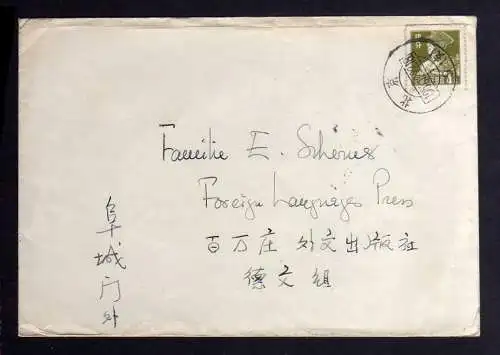 北京
Familie E. Schönes
Foreign Languages Press
百万庄 外文出版社
德文组
阜城门外